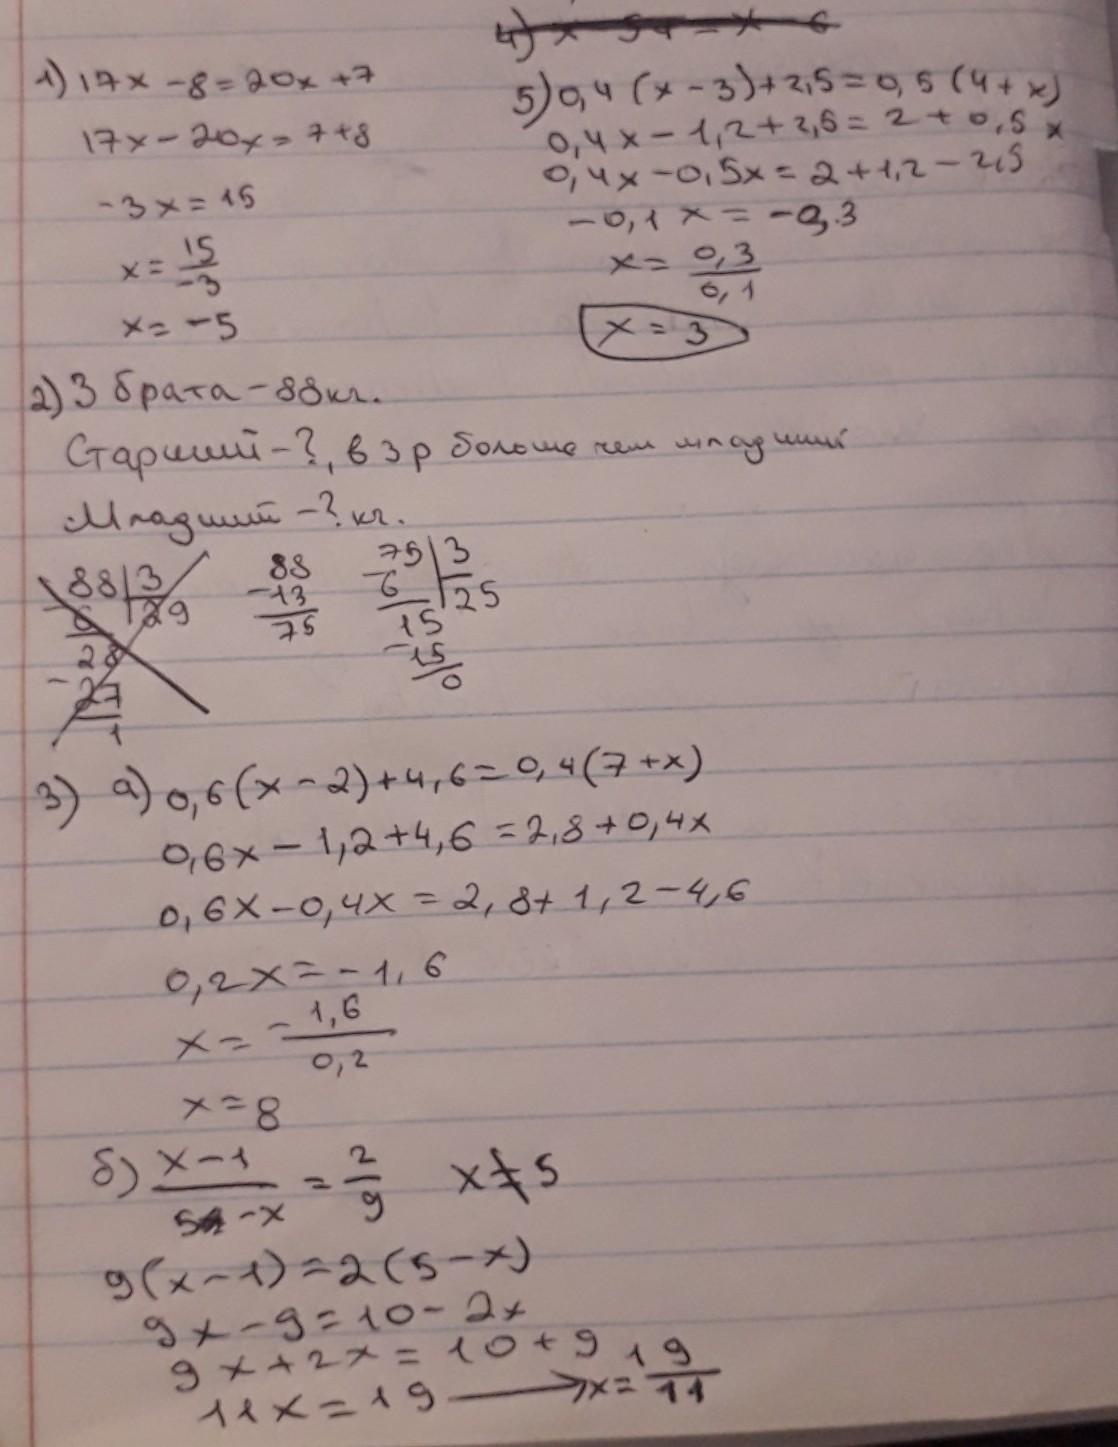 1) 17x - 8 = 20x + 7
17x - 20x = 7 + 8
-3x = 15
x = 15/-3
x = -5
5) 0,4 (x - 3) + 2,5 = 0,5 (4 + x)
0,4x - 1,2 + 2,5 = 2 + 0,5x
0,4x - 0,5x = 2 + 1,2 - 2,5
-0,1x = -0,3
x = 0,3/0,1
x = 3
2) 3 брата - 88кг.
Старший - ?, в 3 р больше чем младший
Младший - ? кг.
88 | 3
6 29
28
- 27
1
88
- 13
75
75 | 3
- 6 25
15
- 15
0
3) а) 0,6(x - 2) + 4,6 = 0,4(7 + x)
0,6x - 1,2 + 4,6 = 2,8 + 0,4x
0,6x - 0,4x = 2,8 + 1,2 - 4,6
0,2x = -1,6
x = - 1,6/0,2
x = 8
б) x - 1/5 - x = 2/9 x ≠ 5
9(x - 1) = 2(5 - x)
9x - 9 = 10 - 2x
9x + 2x = 10 + 9
11x = 19 → x = 19/11